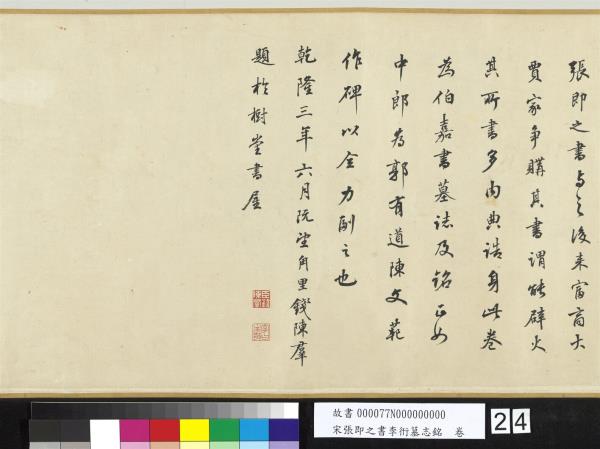 張即之書之後来富商大
賈家争購其書謂能辟火
其所書多内典誥身此卷
為伯嘉書墓誌及銘正如
中郎為郭有道陳文範
作碑以全力副之也
乾隆三年六月既望角里錢陳羣
題於樹堂書屋
故書 000077N000000000
宋張即之書李衎墓志銘 卷
24